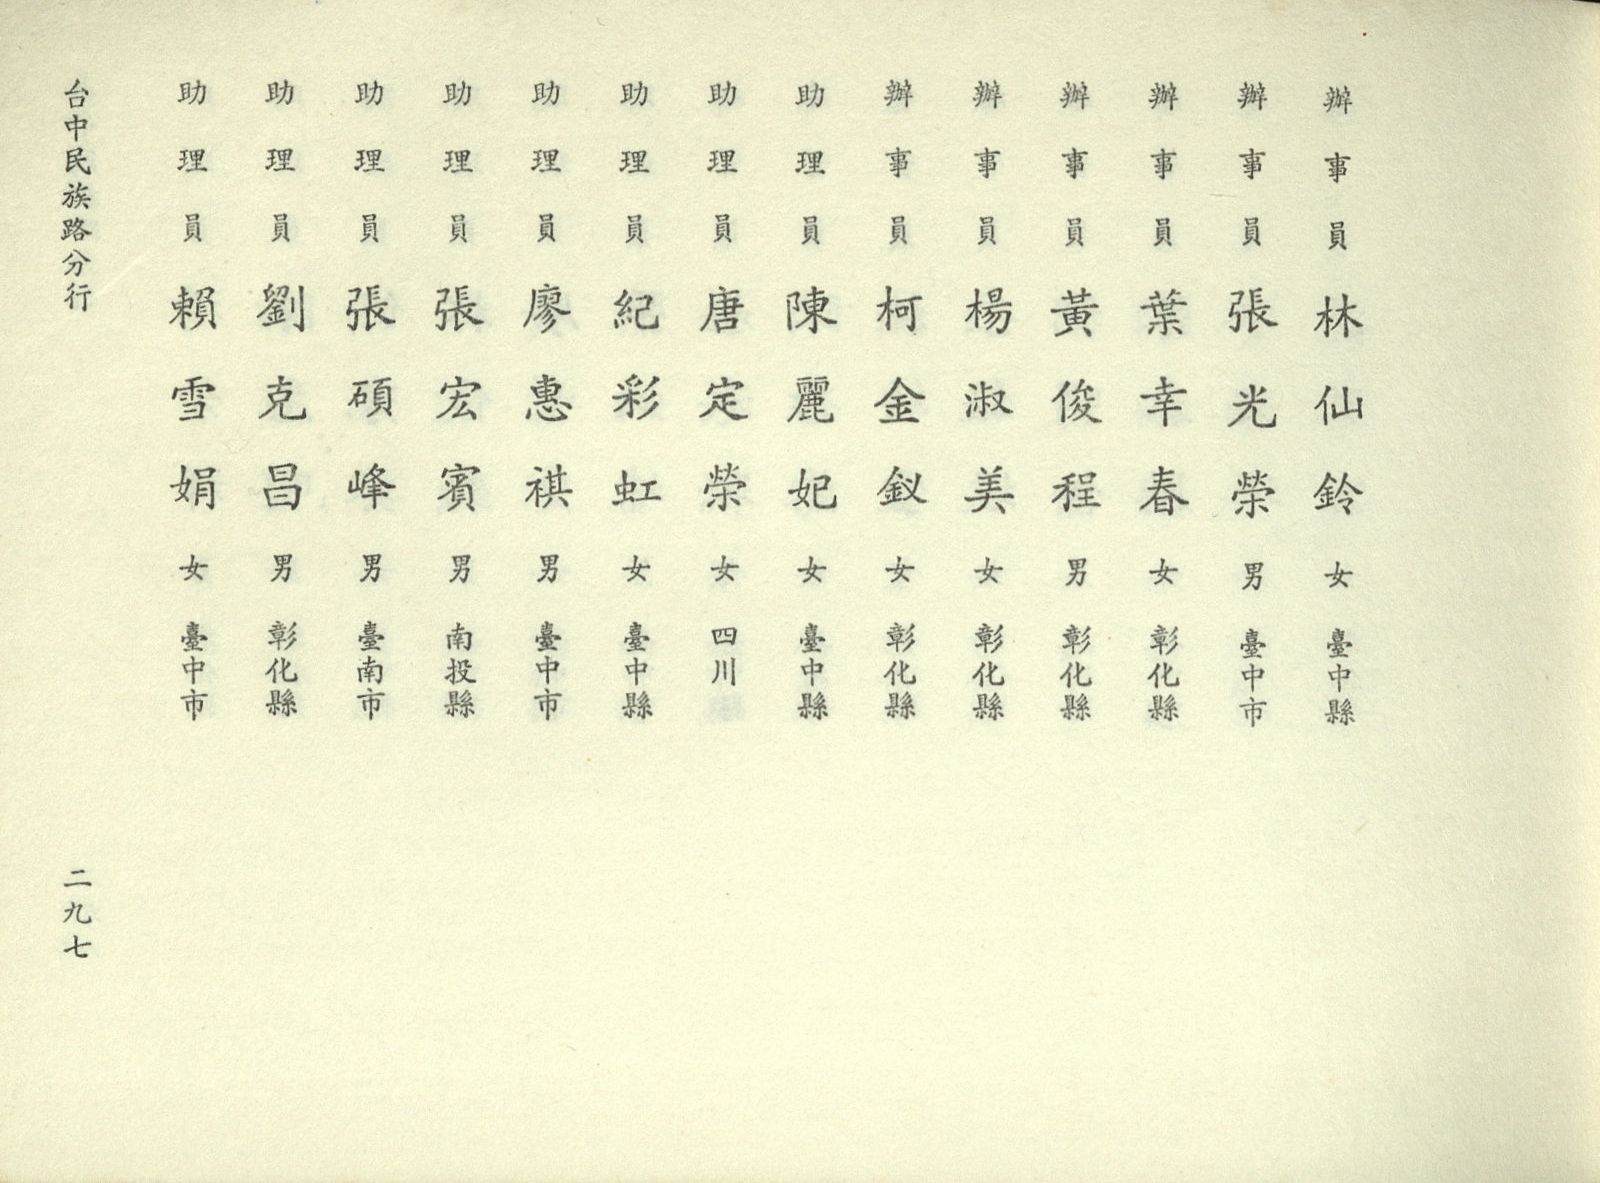 辦事員林仙鈴女臺中縣
辦事員張光榮男臺中市
辦事員葉幸春女彰化縣
辦事員黃俊程男彰化縣
辦事員楊淑美女彰化縣
辦事員柯金釵女彰化縣
助理員陳麗妃女臺中縣
助理員唐定榮女四川
助理員紀彩虹女臺中縣
助理員廖惠祺男臺中市
助理員張宏賓男南投縣
助理員張碩峰男臺南市
助理員劉克昌男彰化縣
助理員賴雪娟女臺中市
台中民族路分行
二九七